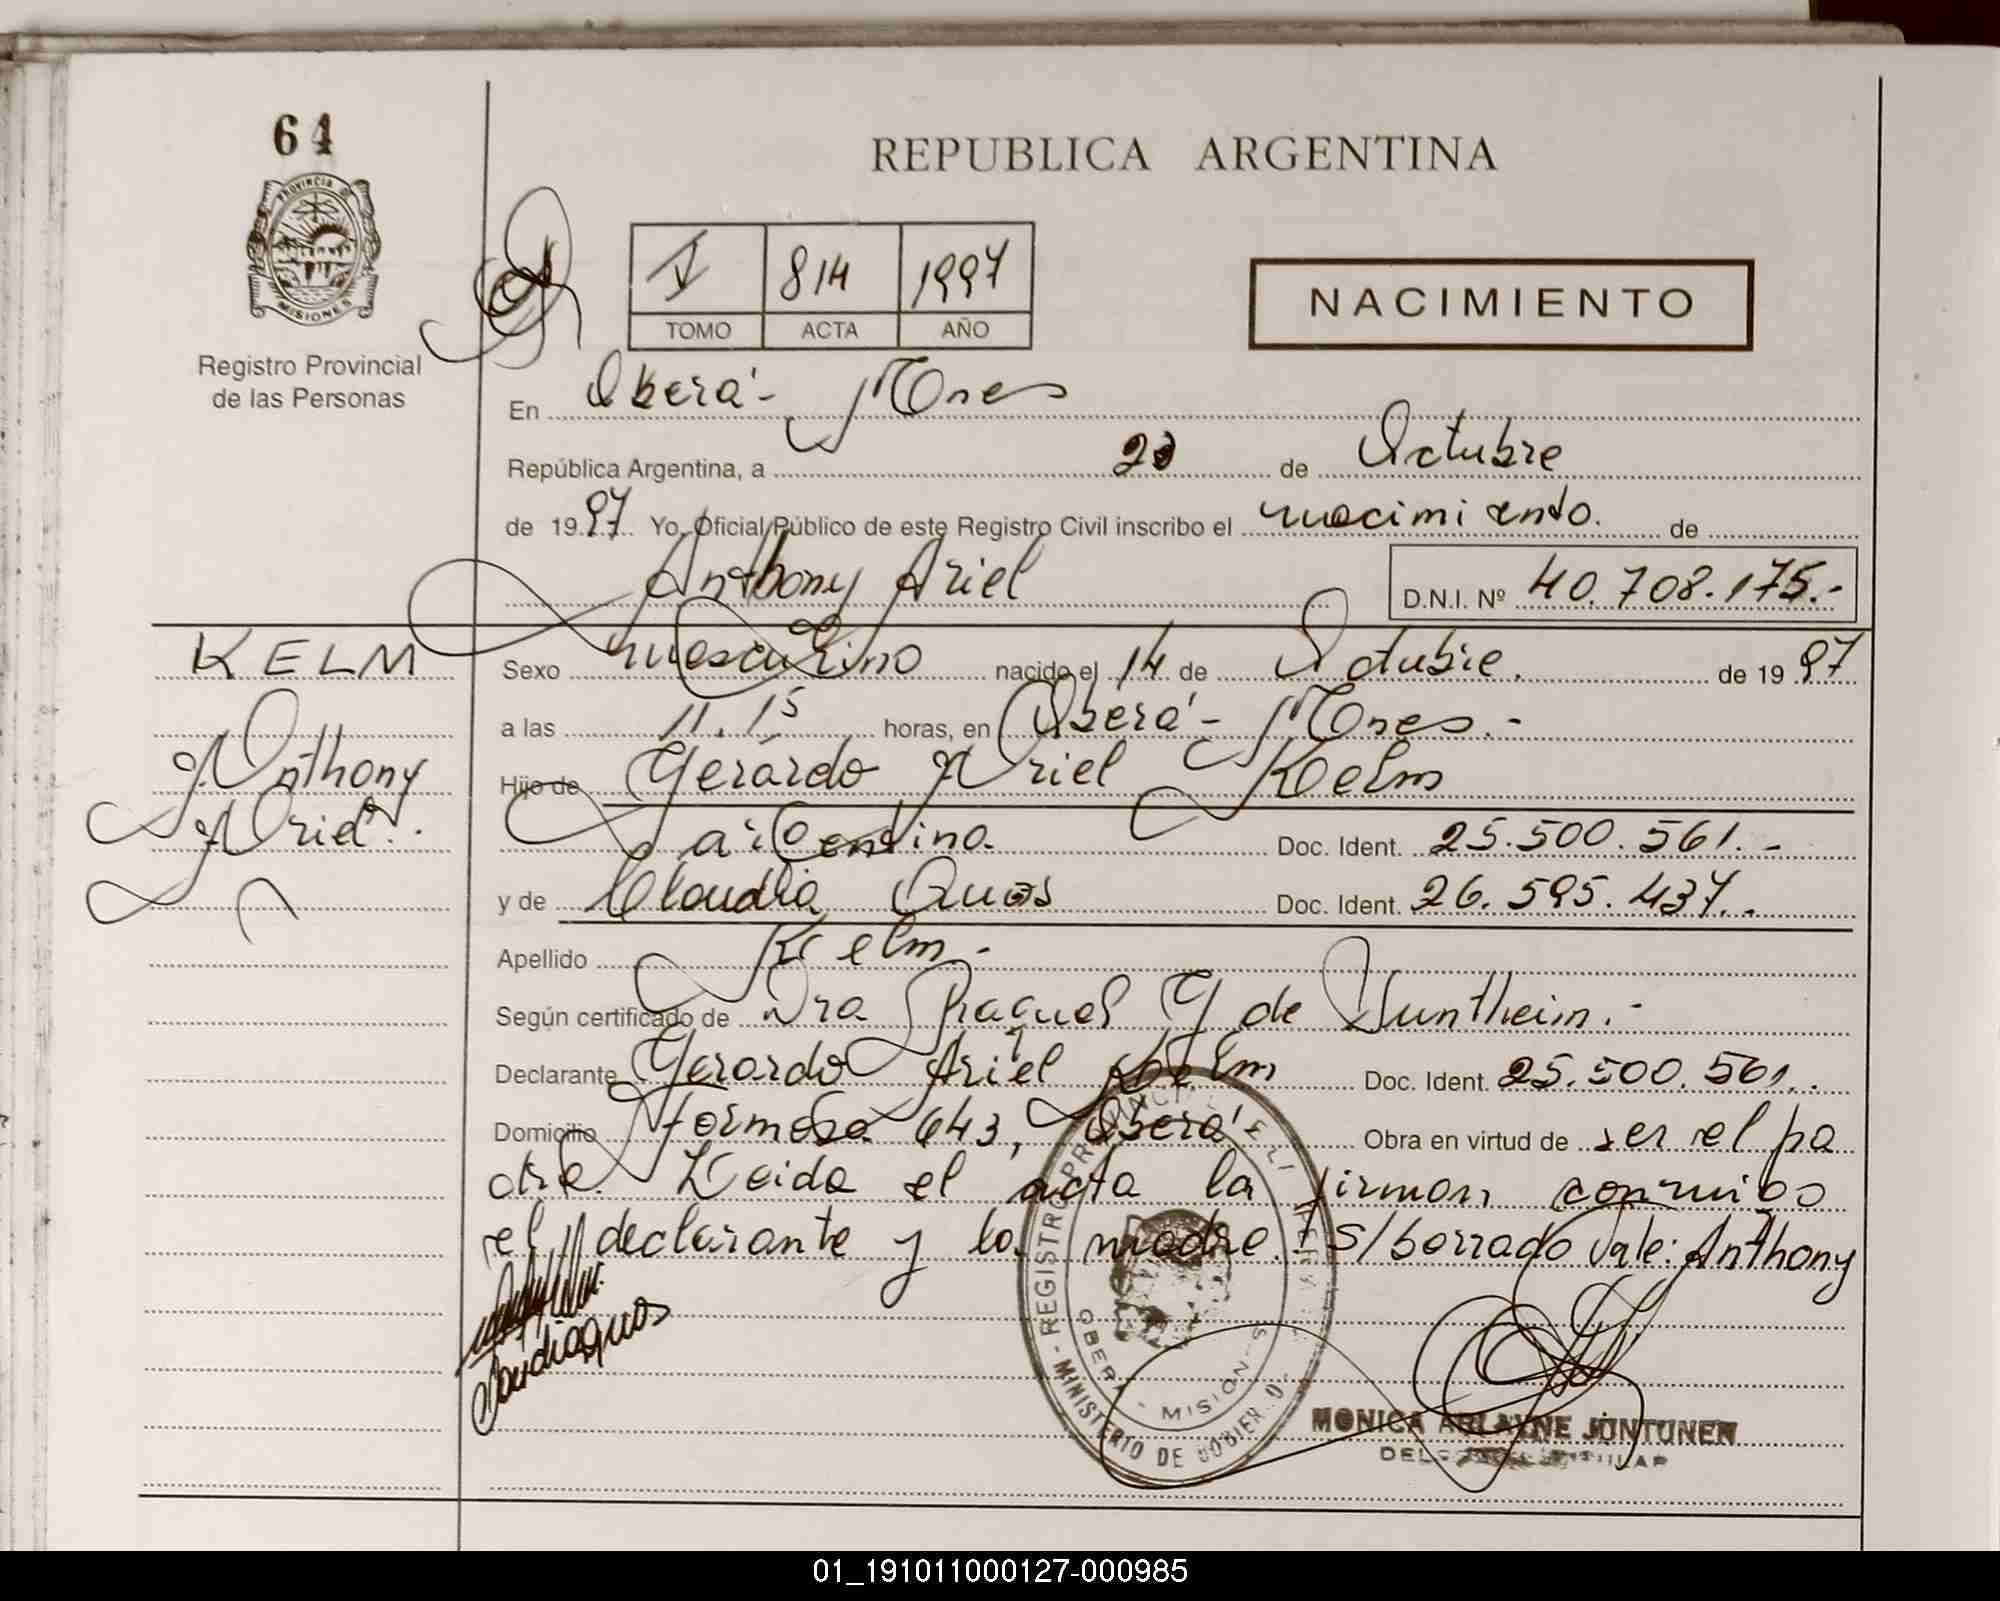 64
PROVINCIA D
MISIONES
Registro Provincial
de las Personas
REPUBLICA ARGENTINA
V 814 1997
TOMO ACTA AÑO
NACIMIENTO
En Oberá - Mnes
República Argentina, a 20 de Octubre
de 1997 Yo, Oficial Público de este Registro Civil inscribo el nacimiento. de
Anthony Ariel D.N.I. Nº 40.708.175.-
KELM
Anthony
Ariel.
Sexo masculino nacido el 14 de Octubre. de 1997
a las 11.15 horas, en Oberá - Mnes.-
Hijo de Gerardo Ariel Kelm
argentino. Doc. Ident. 25.500.561.-
y de Claudia Quos Doc. Ident. 26.595.437.-
Apellido Kelm.-
Según certificado de Dra Raquel G de Suntheim.-
Declarante Gerardo Ariel Kelm Doc. Ident. 25.500.561.
Domicilio Formosa 643, Oberá Obra en virtud de ser el pa
dre. Leida el acta la firman conmigo
el declarante y la madre. S/borrado Vale: Anthony
Claudia Quos
REGISTRO PROVINCIAL DE LAS PERSONAS
OBERA - MISIONES
MINISTERIO DE GOBIERNO
MONICA ARLAYNE JUNTUNEN
01_191011000127-000985